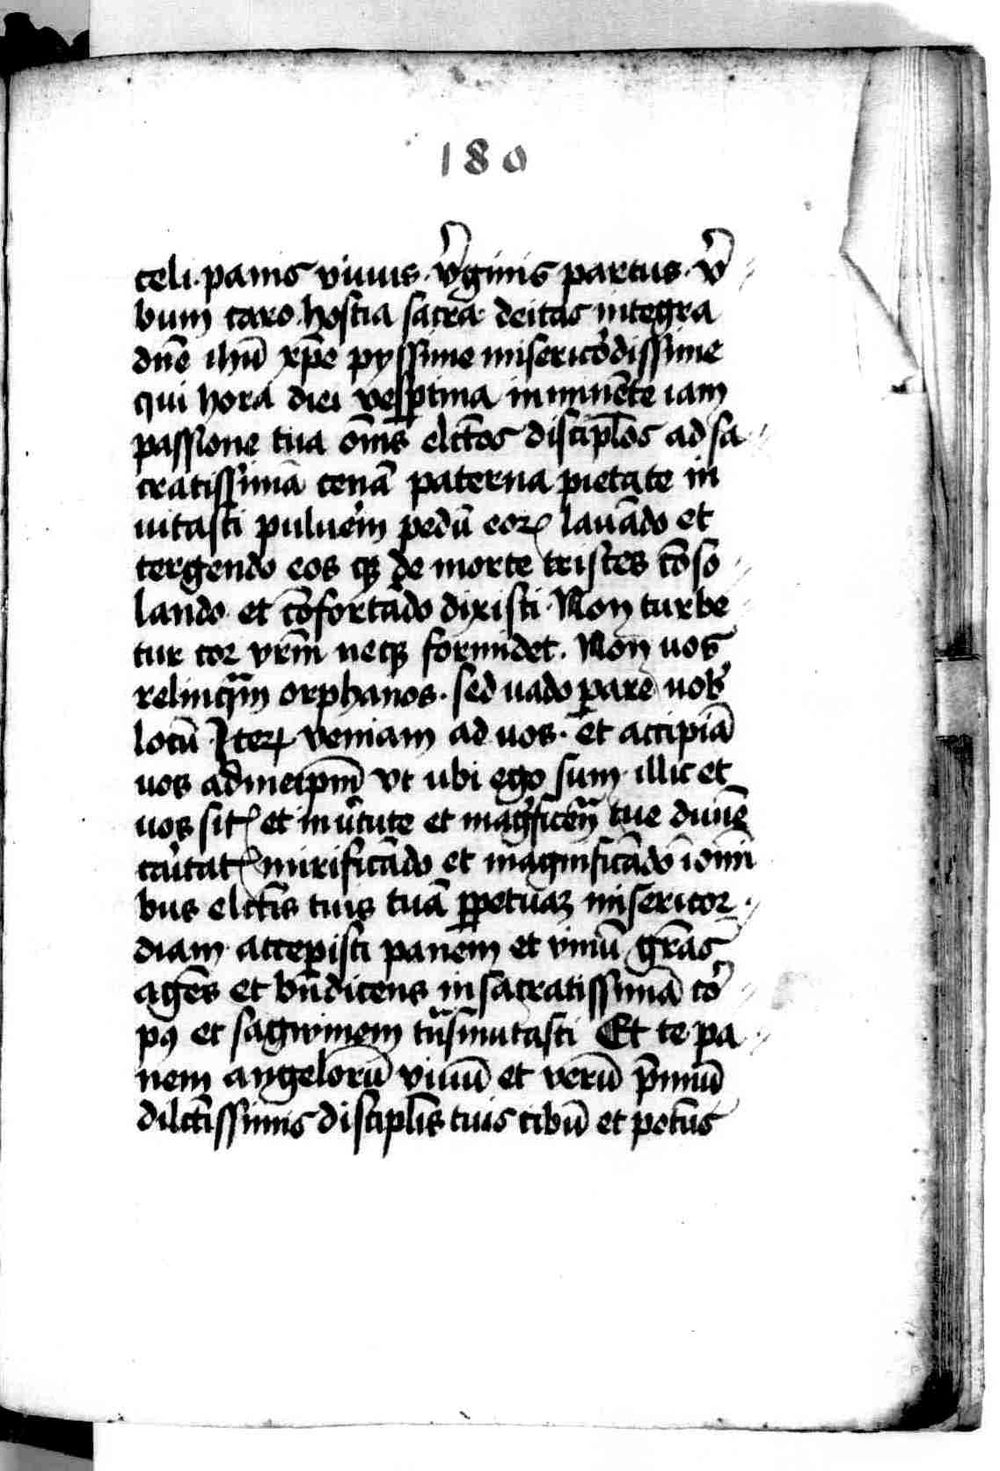 180
celi. panis viuus. v̓ginis partus. v̓
bum caro. hostia sacra. deitas integra
dn̄e ihū xp̄e pyssime misericordissime
qui hora diei vesꝑtina imminēte iam
passione tua om̄s elc̄tos discipl̄os ad sa
cratissimā cenā paterna pietate in
uitasti puluerem pedū eoꝝ lauādo et
tergendo eos qꝫ de morte tristes cōso
lando et cōfortādo dixisti. Non turbe
tur cor vr̄m neqꝫ formidet. Non vos
relinquam orphanos. sed vado ꝑare vob̓
locū Iteꝝ veniam ad vos. et accipiā
vos ad meip̄m vt vbi ego sum illic et
vos sitꝭ et in v̓tute et magnificen tue diuīe
caritatꝭ mirificādo et magnificādo ī om̄i
bus elc̄is tuis tuā ꝑpetuaꝫ misericor
diam accepisti panem et vinū gr̄as
agēs et bn̄dicens in sacratissimā co̓
pꝯ et sagwinem tn̄smutasti Et te pa
nem angelorū viuū et verū p̄mū
dilc̄issimis discipl̄is tuis cibū et potūs